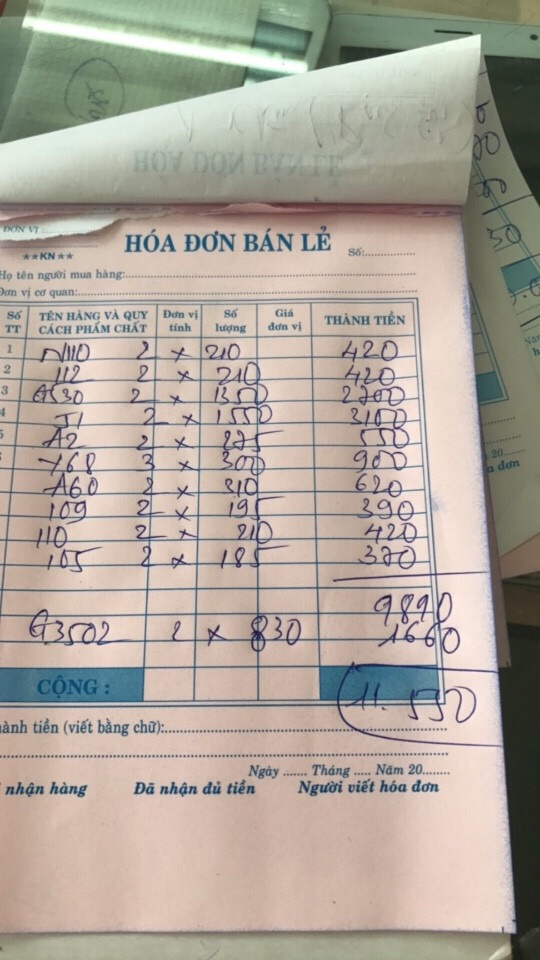 ĐƠN VỊ
★★KN★★
HÓA ĐƠN BÁN LẺ
Số:
Họ tên người mua hàng:
Đơn vị cơ quan:
Số TT TÊN HÀNG VÀ QUY CÁCH PHẨM CHẤT Đơn vị tính Số lượng Giá đơn vị THÀNH TIỀN
1 N110 2 × 210 420
2 112 2 × 210 420
3 G530 2 × 1350 2700
4 J1 2 × 1550 3100
5 A2 2 × 275 550
168 3 × 300 900
A60 2 × 310 620
109 2 × 195 390
110 2 × 210 420
105 2 × 185 370
9890
G3502 2 × 830 1660
CỘNG : 11.550
hành tiền (viết bằng chữ):
Ngày ....... Tháng ..... Năm 20........
nhận hàng Đã nhận đủ tiền Người viết hóa đơn